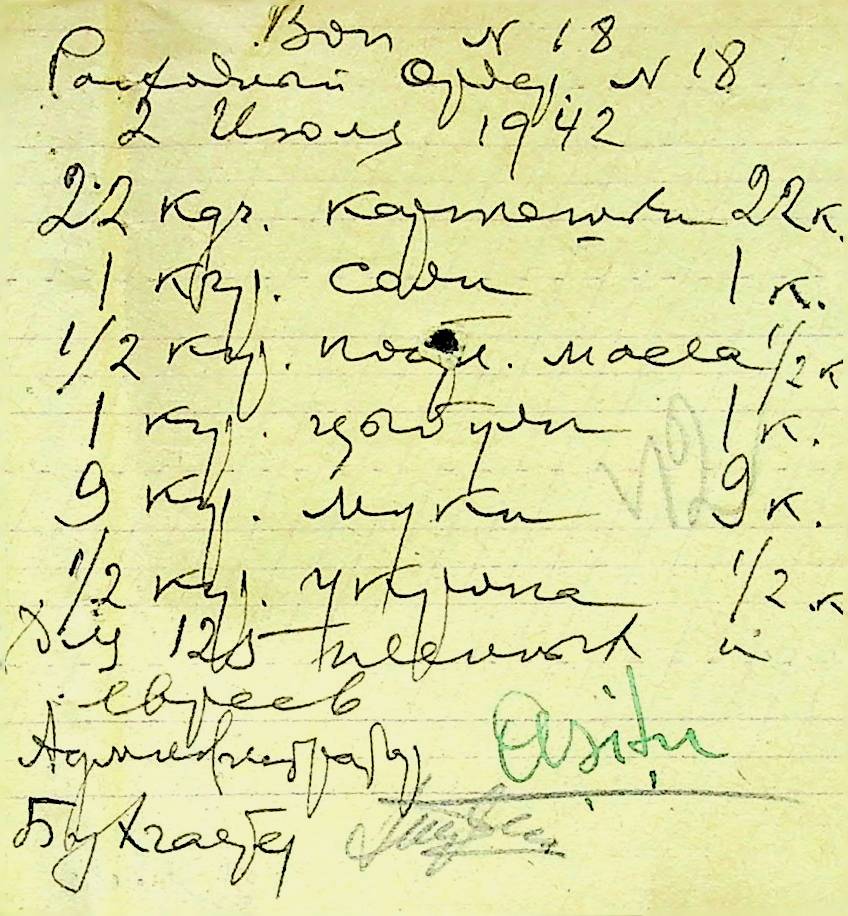 Бон N 18
Расходный Ордер. N 18
2 Июля 1942
22 кгр. картошки 22 к.
1 кгр. соли 1 к.
1/2 кгр. масла 1/2 к
1 кгр. цыбули 1 к.
9 кгр. муки 9 к.
1/2 кгр. укропа 1/2 к
Для 125 пленных и
евреев
Администратор
Бухгалтер